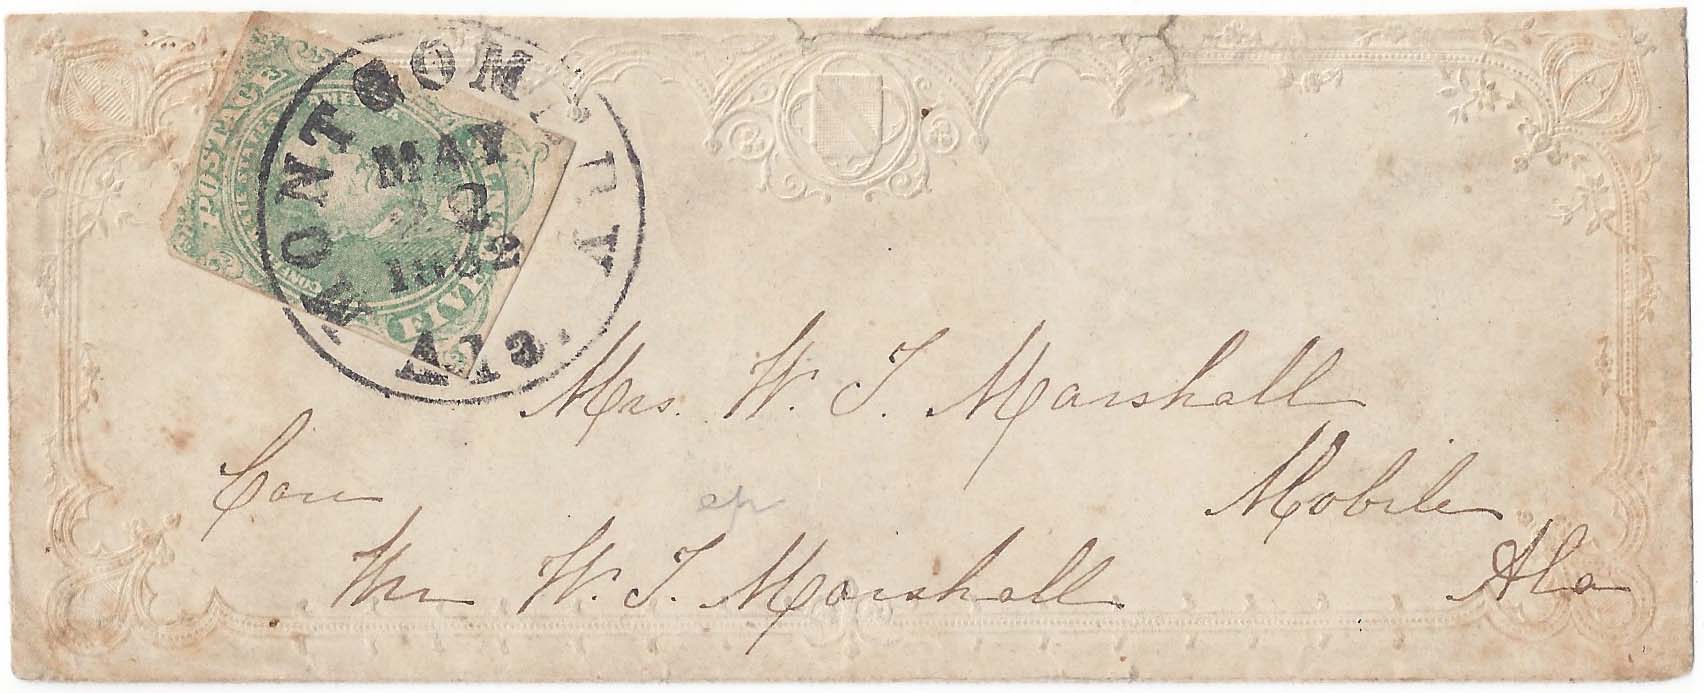 POSTAGE
FIVE CENTS
MONTGOMERY
MAY
2
1862
Ala.
Mrs. W. T. Marshall
Care Mobile
Mr W. T. Marshall Ala